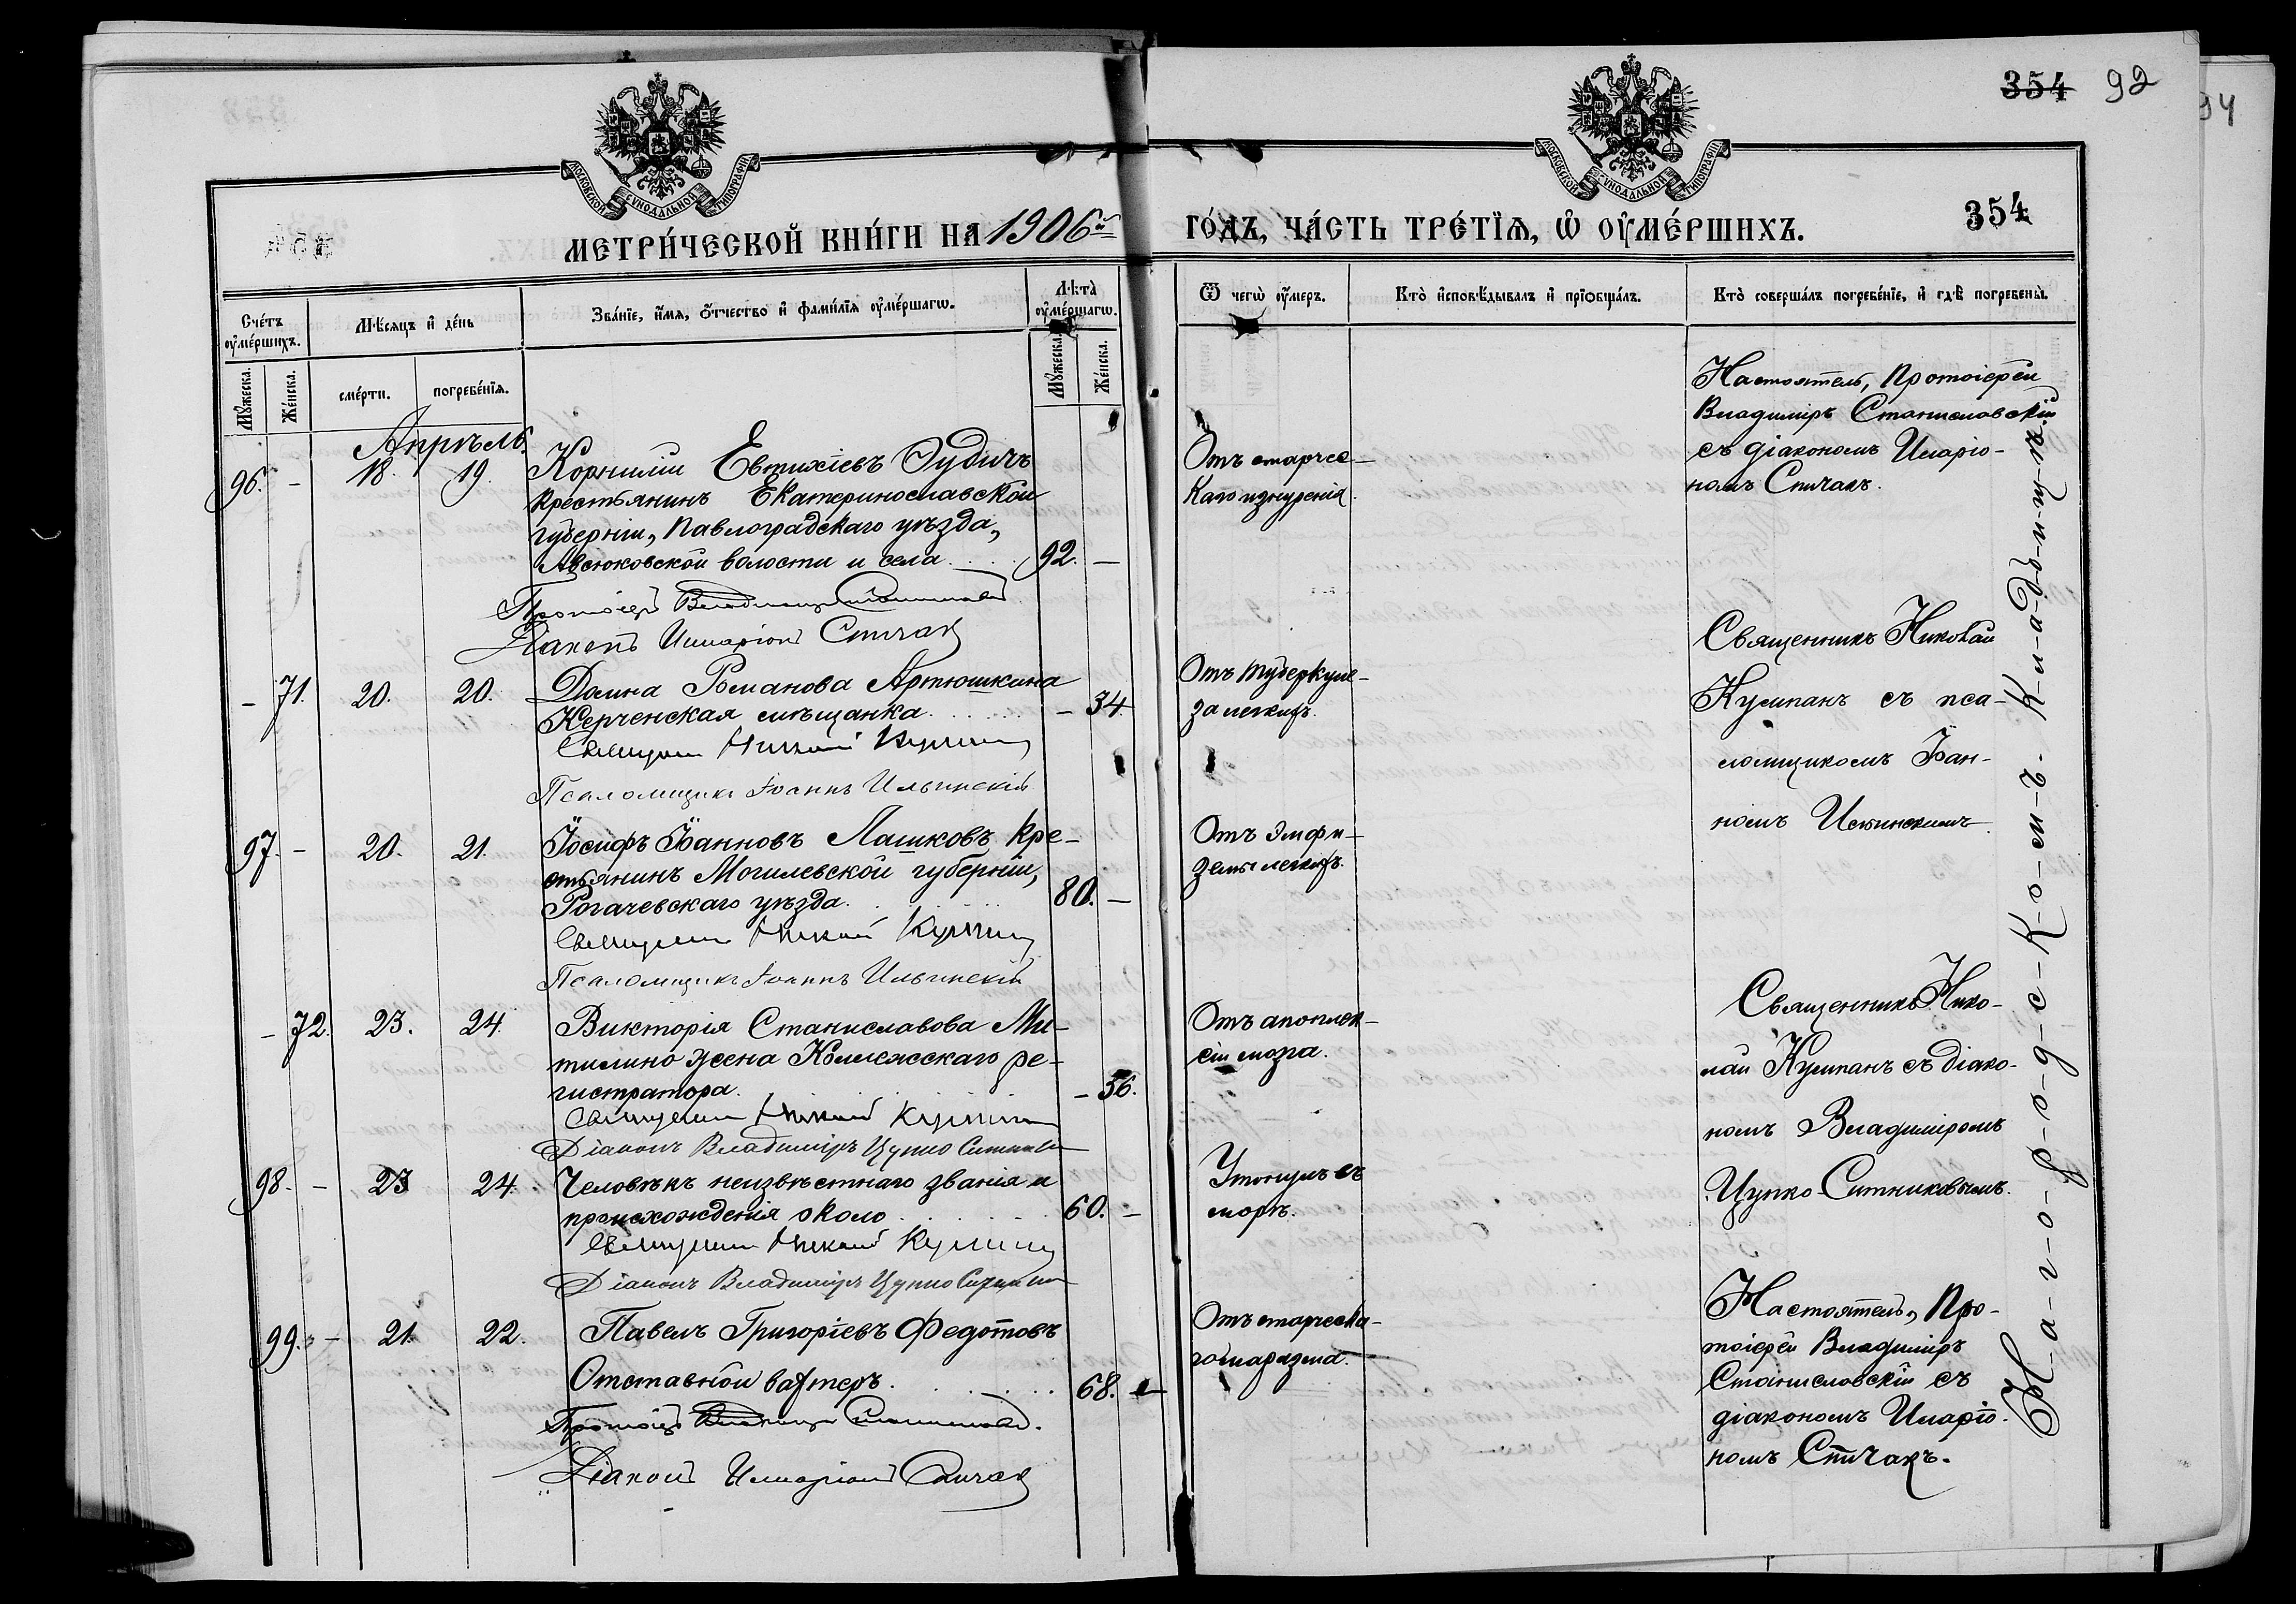 354 92
94
МОСКОВСКОЙ СѴНОДАЛЬНОЙ ТИПОГРАФІИ
МОСКОВСКОЙ СѴНОДАЛЬНОЙ ТИПОГРАФІИ
МЕТРИ́ЧЕСКОЙ КНИ́ГИ НА 1906й
ГО́ДЪ, ЧА́СТЬ ТРЕ́ТЇѦ, Ѡ҆ ОУ҆МЕ́РШИХЪ.
354
Сче́тъ оу҆ме́ршихъ.
Мѣ́сяцъ и҆ де́нь
Зва́нїе, и҆́мя, ѻ҆́тчество и҆ фами́лїя оу҆ме́ршагѡ.
Лѣ́та оу҆ме́ршагѡ.
Мꙋ́жеска.
Же́нска.
сме́рти.
погребе́нїя.
Мꙋ́жеска.
Же́нска.
Ѿ чегѡ̀ оу҆́меръ.
Кто̀ и҆сповѣ́дывалъ и҆ прїѻбща́лъ.
Кто̀ соверша́лъ погребе́нїе, и҆ гдѣ̀ погребены̀.
Апрѣль.
96. - 18. 19.
Корнилій Евтихіевъ Зудичъ
крестьянинъ Екатеринославской
губерніи, Павлоградскаго уѣзда,
волости и села . . . 92. -
Протоіерей Владимиръ Станиславскій
Діаконъ Иларіонъ Спичак
Отъ старчес-
каго изнуренія.
Настоятель, Протоіерей
Владиміръ Станиславскій
съ діакономъ Иларіо-
номъ Спичакъ.
- 71. 20. 20.
Домна Романова Артюшкина
Керченская мѣщанка . . . . . . - 34.
Священникъ Николай Кулпанъ
Псаломщикъ Іоаннъ Ильинскій
Отъ туберкуле-
за легкихъ.
Священникъ Николай
Кулпанъ съ пса-
ломщикомъ Іоан-
номъ Ильинскимъ.
97. - 20. 21.
Іосифъ Іоанновъ Лашковъ, кре-
стьянинъ Могилевской губерніи,
Рогачевскаго уѣзда. . . . . . 80. -
Священникъ Николай Кулпанъ
Псаломщикъ Іоаннъ Ильинскій
Отъ эмфи-
земы легкихъ.
- 72. 23. 24.
Викторія Станиславова Ми-
тилино жена Коллежскаго ре-
гистратора. . . . . . - 56.
Священникъ Николай Кулпанъ
Діаконъ Владиміръ Цупко Ситников
Отъ апоплек-
сіи мозга.
Священникъ Нико-
лай Кулпанъ съ діако-
номъ Владиміромъ
Цупко-Ситниковымъ.
98. - 23 24.
Человѣкъ неизвѣстнаго званія и
происхожденія около . . . . . 60. -
Священникъ Николай Кулпанъ
Діаконъ Владиміръ Цупко Ситников
Утонулъ въ
морѣ.
99. - 21. 22.
Павелъ Григоріевъ Федотовъ
Отставной вахтеръ. . . . . . 68. -
Протоіерей Владимиръ Станиславскій.
Діаконъ Иларіонъ Спичак
Отъ старческа-
го маразма.
Настоятель, Про-
тоіерей Владиміръ
Станиславскій съ
діакономъ Иларіо-
номъ Спичакъ.
На-го-р-о-д-с-к-о-м-ъ- к-л-а-д-б-и-щ-ѣ.